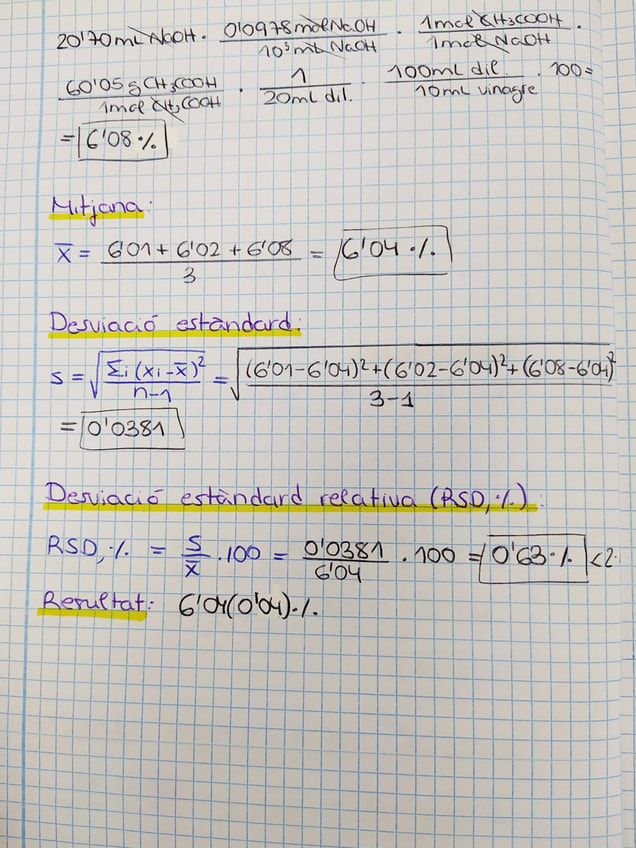 20'70mL NaOH · 0'0978 mol NaOH / 10³ mL NaOH · 1mol CH₃COOH / 1mol NaOH ·
60'05 g CH₃COOH / 1mol CH₃COOH · 1 / 20mL dil. · 100mL dil. / 10mL vinagre · 100 =
= 6'08 ·/.
Mitjana:
x̄ = 6'01 + 6'02 + 6'08 / 3 = 6'04 ·/.
Desviació estàndard:
s = √(Σi (xi - x̄)² / n-1) = √((6'01-6'04)² + (6'02-6'04)² + (6'08-6'04)² / 3-1)
= 0'0381
Desviació estàndard relativa (RSD, ·/.):
RSD, ·/. = s / x̄ · 100 = 0'0381 / 6'04 · 100 = 0'63 ·/. <2
Resultat: 6'04(0'04) ·/.